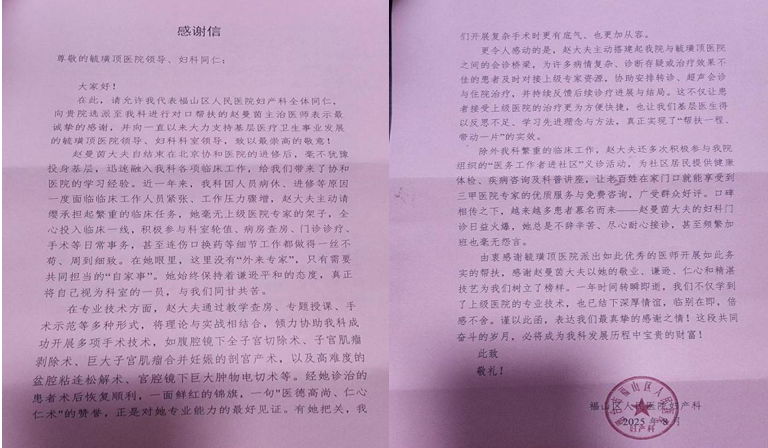 感谢信
尊敬的毓璜顶医院领导、妇科同仁：
大家好！
在此，请允许我代表福山区人民医院妇产科全体同仁，
向贵院选派至我科进行对口帮扶的赵曼茵主治医师表示最
诚挚的感谢，并向一直以来大力支持基层医疗卫生事业发展
的毓璜顶医院领导、妇科科室领导，致以最崇高的敬意！
赵曼茵大夫自结束在北京协和医院的进修后，毫不犹豫
投身基层，迅速融入我科各项临床工作，给我们带来了协和
医院的学习经验。近一年来，我科因人员病休、进修等原因
一度面临临床工作人员紧张、工作压力骤增，赵大夫主动请
缨承担起繁重的临床任务，她毫无上级医院专家的架子，全
心投入临床一线，积极参与科室轮值、病房查房、门诊诊疗、
手术等日常事务，甚至连伤口换药等细节工作都做得一丝不
苟、周到细致。在她眼里，这里没有“外来专家”，只有需要
共同担当的“自家事”。她始终保持着谦逊平和的态度，真正
将自己视为科室的一员，与我们同甘共苦。
在专业技术方面，赵大夫通过教学查房、专题授课、手
术示范等多种形式，将理论与实战相结合，倾力协助我科成
功开展多项手术技术，如腹腔镜下全子宫切除术、子宫肌瘤
剥除术、巨大子宫肌瘤合并妊娠的剖宫产术，以及高难度的
盆腔粘连松解术、宫腔镜下巨大肿物电切术等。经她诊治的
患者术后恢复顺利，一面鲜红的锦旗，一句“医德高尚、仁心
仁术”的赞誉，正是对她专业能力的最好见证。有她把关，我
们开展复杂手术时更有底气、也更加从容。
更令人感动的是，赵大夫主动搭建起我院与毓璜顶医院
之间的会诊桥梁，为许多病情复杂、诊断存疑或治疗效果不
佳的患者及时对接上级专家资源，协助安排转诊、超声会诊
与住院治疗，并持续反馈后续诊疗进展与结局。这不仅让患
者接受上级医院的治疗更为方便快捷，也让我们基层医生得
以反思不足、学习先进理念与方法，真正实现了“帮扶一程、
带动一片”的实效。
除外我科繁重的临床工作，赵大夫还多次积极参与我院
组织的“医务工作者进社区”义诊活动，为社区居民提供健康
体检、疾病咨询及科普讲座，让老百姓在家门口就能享受到
三甲医院专家的优质服务与免费咨询，广受群众好评。口碑
相传之下，越来越多患者慕名而来——赵曼茵大夫的妇科门
诊日益火爆，她总是不辞辛苦、尽心耐心接诊，甚至频繁加
班也毫无怨言。
由衷感谢毓璜顶医院派出如此优秀的医师开展如此务
实的帮扶，感谢赵曼茵大夫以她的敬业、谦逊、仁心和精湛
技艺为我们树立了榜样。一年时间转瞬即逝，我们不仅学到
了上级医院的专业技术，也已结下深厚情谊，临别在即，倍
感不舍。谨以此函，表达我们最真挚的感谢之情！这段共同
奋斗的岁月，必将成为我科发展历程中宝贵的财富！
此致
敬礼！
福山区人民医院妇产科
2025年8月
妇产科